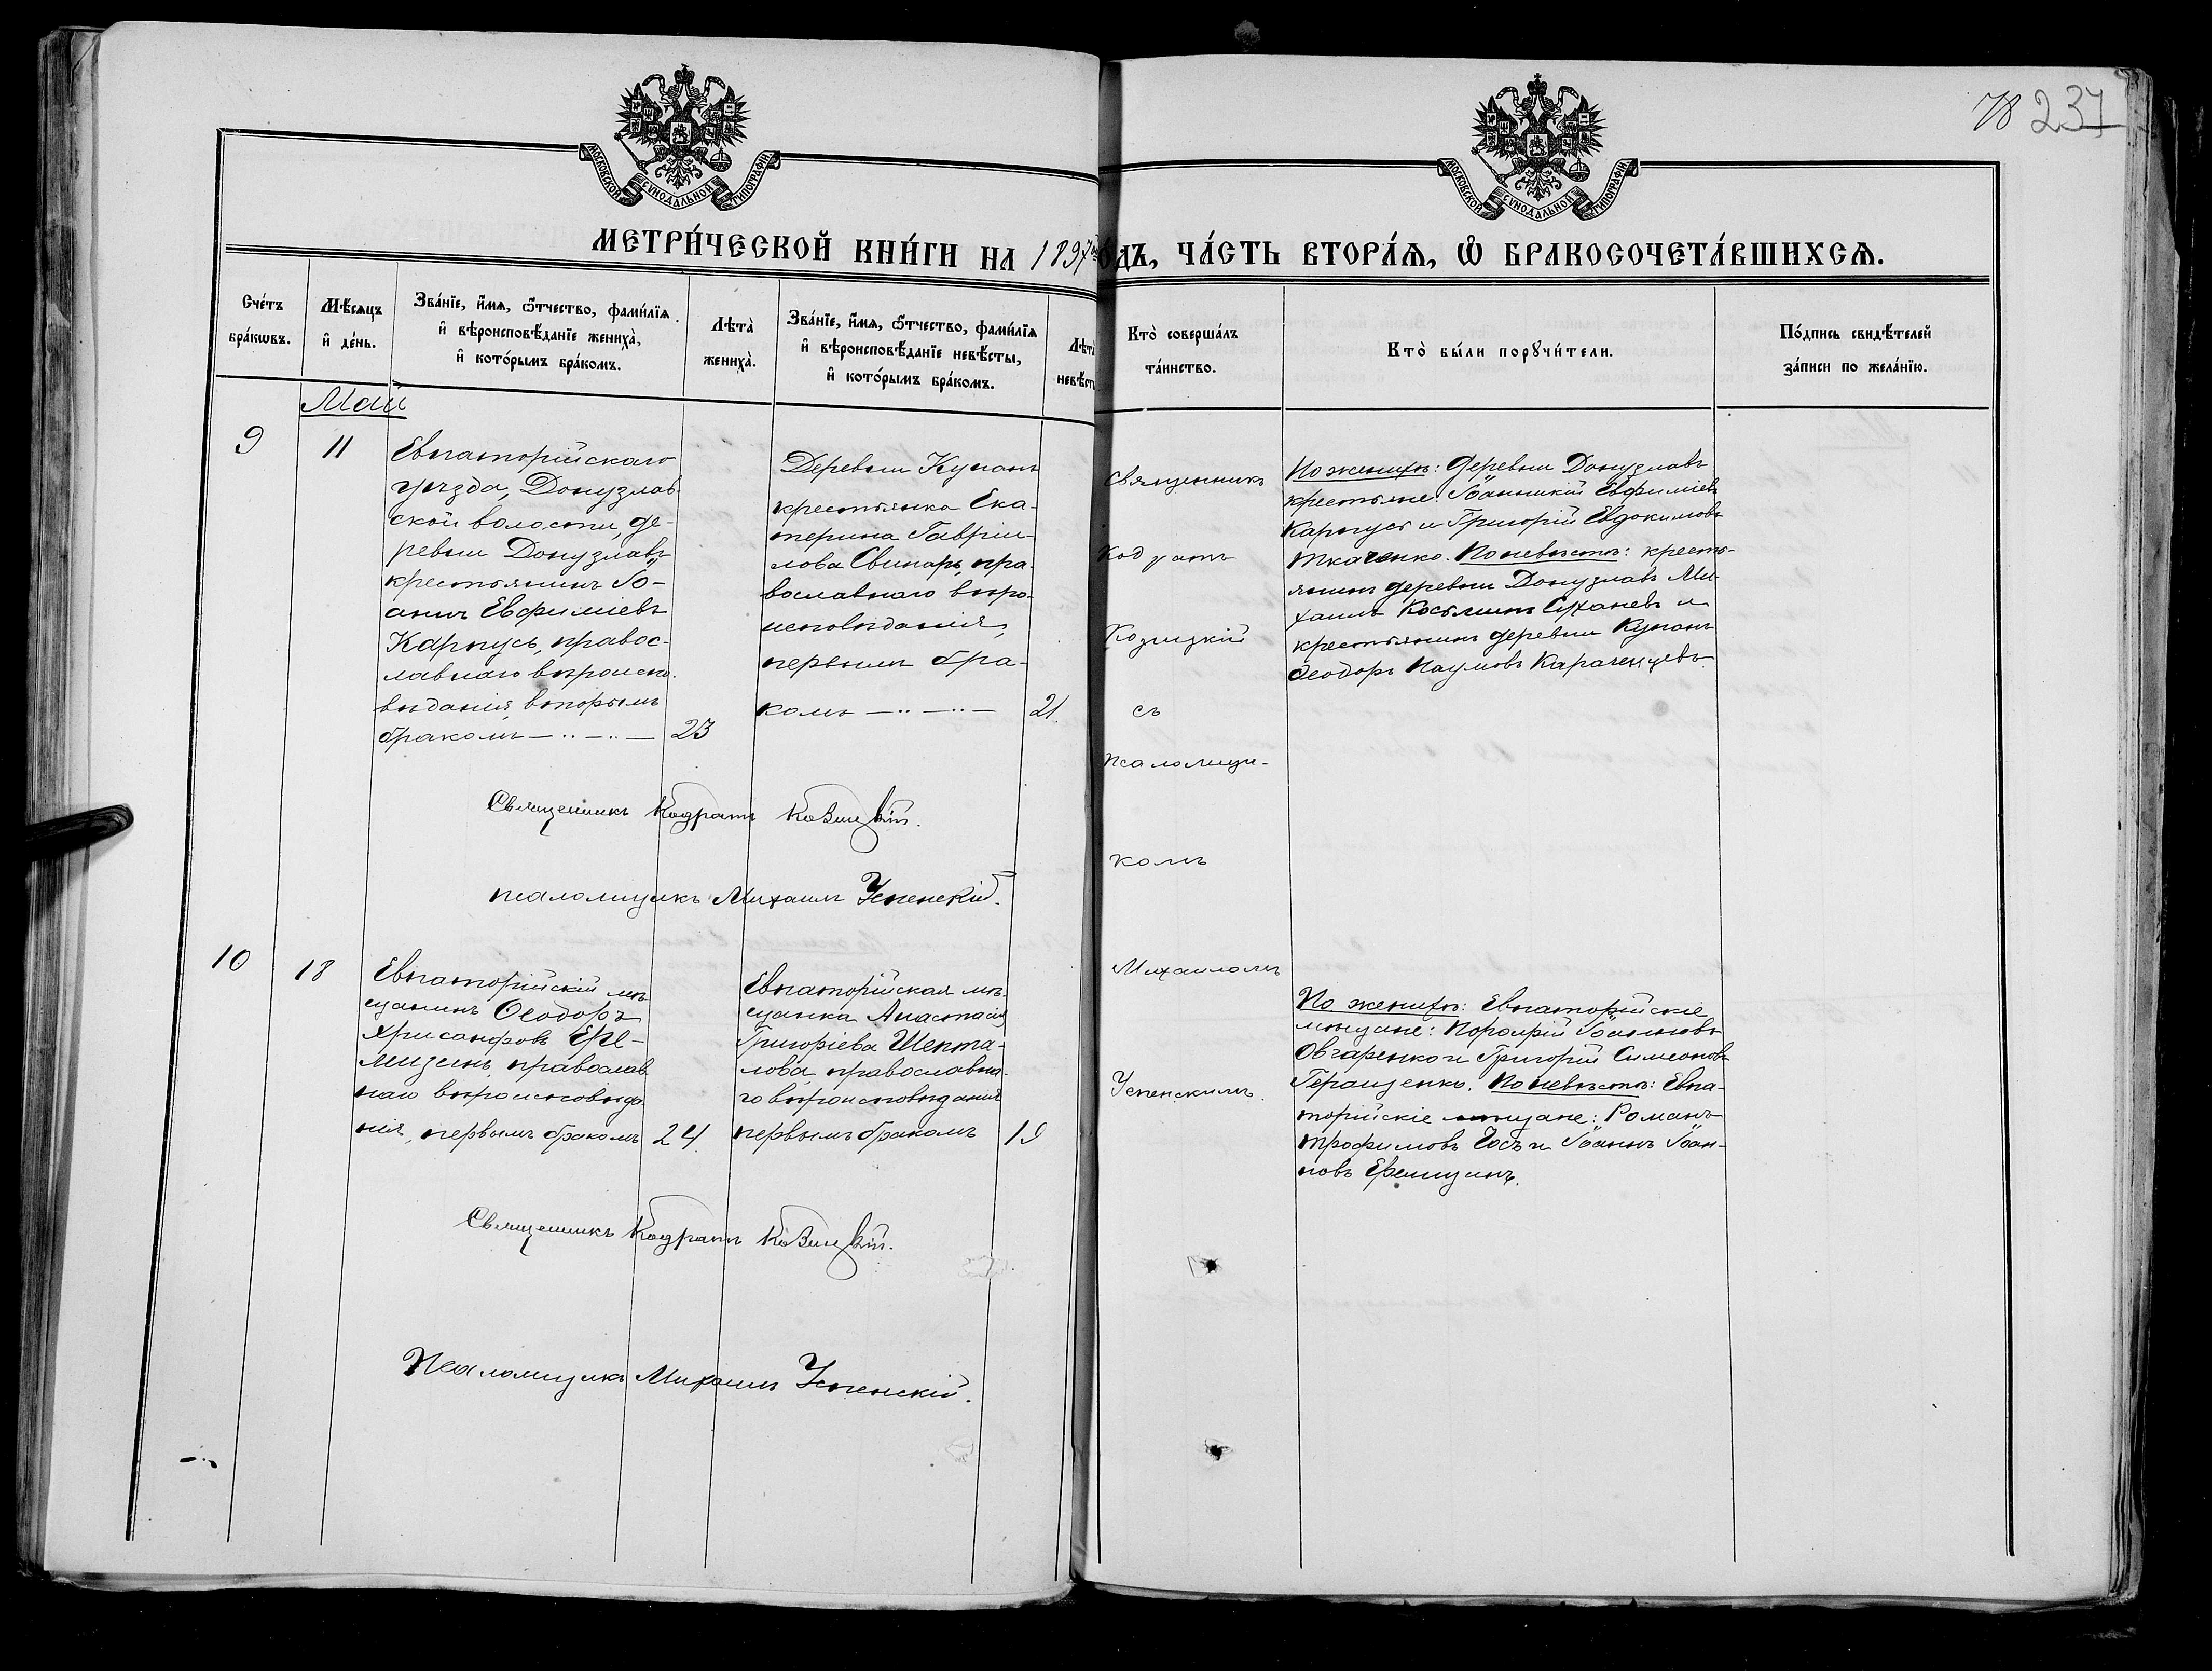 78 237
МОСКОВСКОЙ СѴНОДАЛЬНОЙ ТИПОГРАФІИ
МОСКОВСКОЙ СѴНОДАЛЬНОЙ ТИПОГРАФІИ
МЕТРИ́ЧЕСКОЙ КНИ́ГИ НА 1897й ОДЪ, ЧА́СТЬ ВТОРА́Ѧ, Ѽ БРАКОСОЧЕТА́ВШИХСѦ.
Сче́тъ
бра́кѡвъ.
Мѣ́сяцъ
и҆ де́нь.
Зва́нїе, и҆́мѧ, ѻ҆́тчество, фами́лїѧ
и҆ вѣроисповѣ́данїе жениха̀,
и҆ кото́рымъ бра́комъ.
Лѣта̀
жениха̀.
Зва́нїе, и҆́мѧ, ѻ҆́тчество, фами́лїѧ
и҆ вѣроисповѣ́данїе невѣ́сты,
и҆ кото́рымъ бра́комъ.
Лѣта̀
невѣ́ст
Кто̀ соверша́лъ
та́инство.
Кто̀ бы́ли порꙋчи́тели.
По́дпись свидѣ́телей
за́писи по жела́нїю.
Май
9
11
Евпаторійскаго
уѣзда, Донузлав-
ской волости, де-
ревни Донузлавъ
крестьянинъ Іо-
аннъ Евфиміевъ
Карпусь, правос-
лавнаго вѣроиспо-
вѣданія, вторымъ
бракомъ — ·· — ·· —
23
Деревни Купанъ
крестьянка Ека-
терина Гаврии-
лова Свинарь, пра-
вославнаго вѣро-
исповѣданія,
первымъ бра-
комъ — ·· — ·· —
21.
Священникъ
Кодратъ
Козицкій
съ
псаломщи-
комъ
Михаиломъ
Успенскимъ.
По женихѣ: деревни Донузлавъ
крестьяне: Іоанникій Евфиміевъ
Карпусь и Григорій Евдокимовъ
Ткаченко. По невѣстѣ: кресть-
янинъ деревни Донузлавъ Ми-
хаилъ Косьминъ Суханевъ и
крестьянинъ деревни Купанъ
Ѳеодоръ Наумовъ Караченцевъ.
Священникъ Кодратъ Козицкій.
псаломщикъ Михаилъ Успенскій.
10
18
Евпаторійскій мѣ-
щанинъ Ѳеодоръ
Хрисанфовъ Ере-
мизинъ, православ-
наго вѣроисповѣда-
нія, первымъ бракомъ
24.
Евпаторійская мѣ-
щанка Анастасія
Григоріева Шепта-
лова, православна-
го вѣроисповѣданія
первымъ бракомъ
19
По женихѣ: Евпаторійскіе
мѣщане: Порфирій Іоанновъ
Овчаренко и Григорій Симеоновъ
Геращенко. По невѣстѣ: Евпа-
торійскіе мѣщане: Романъ
Трофимовъ Усъ и Іоаннъ Іоан-
новъ Еремизинъ.
Священникъ Кодратъ Козицкій.
Псаломщикъ Михаилъ Успенскій.